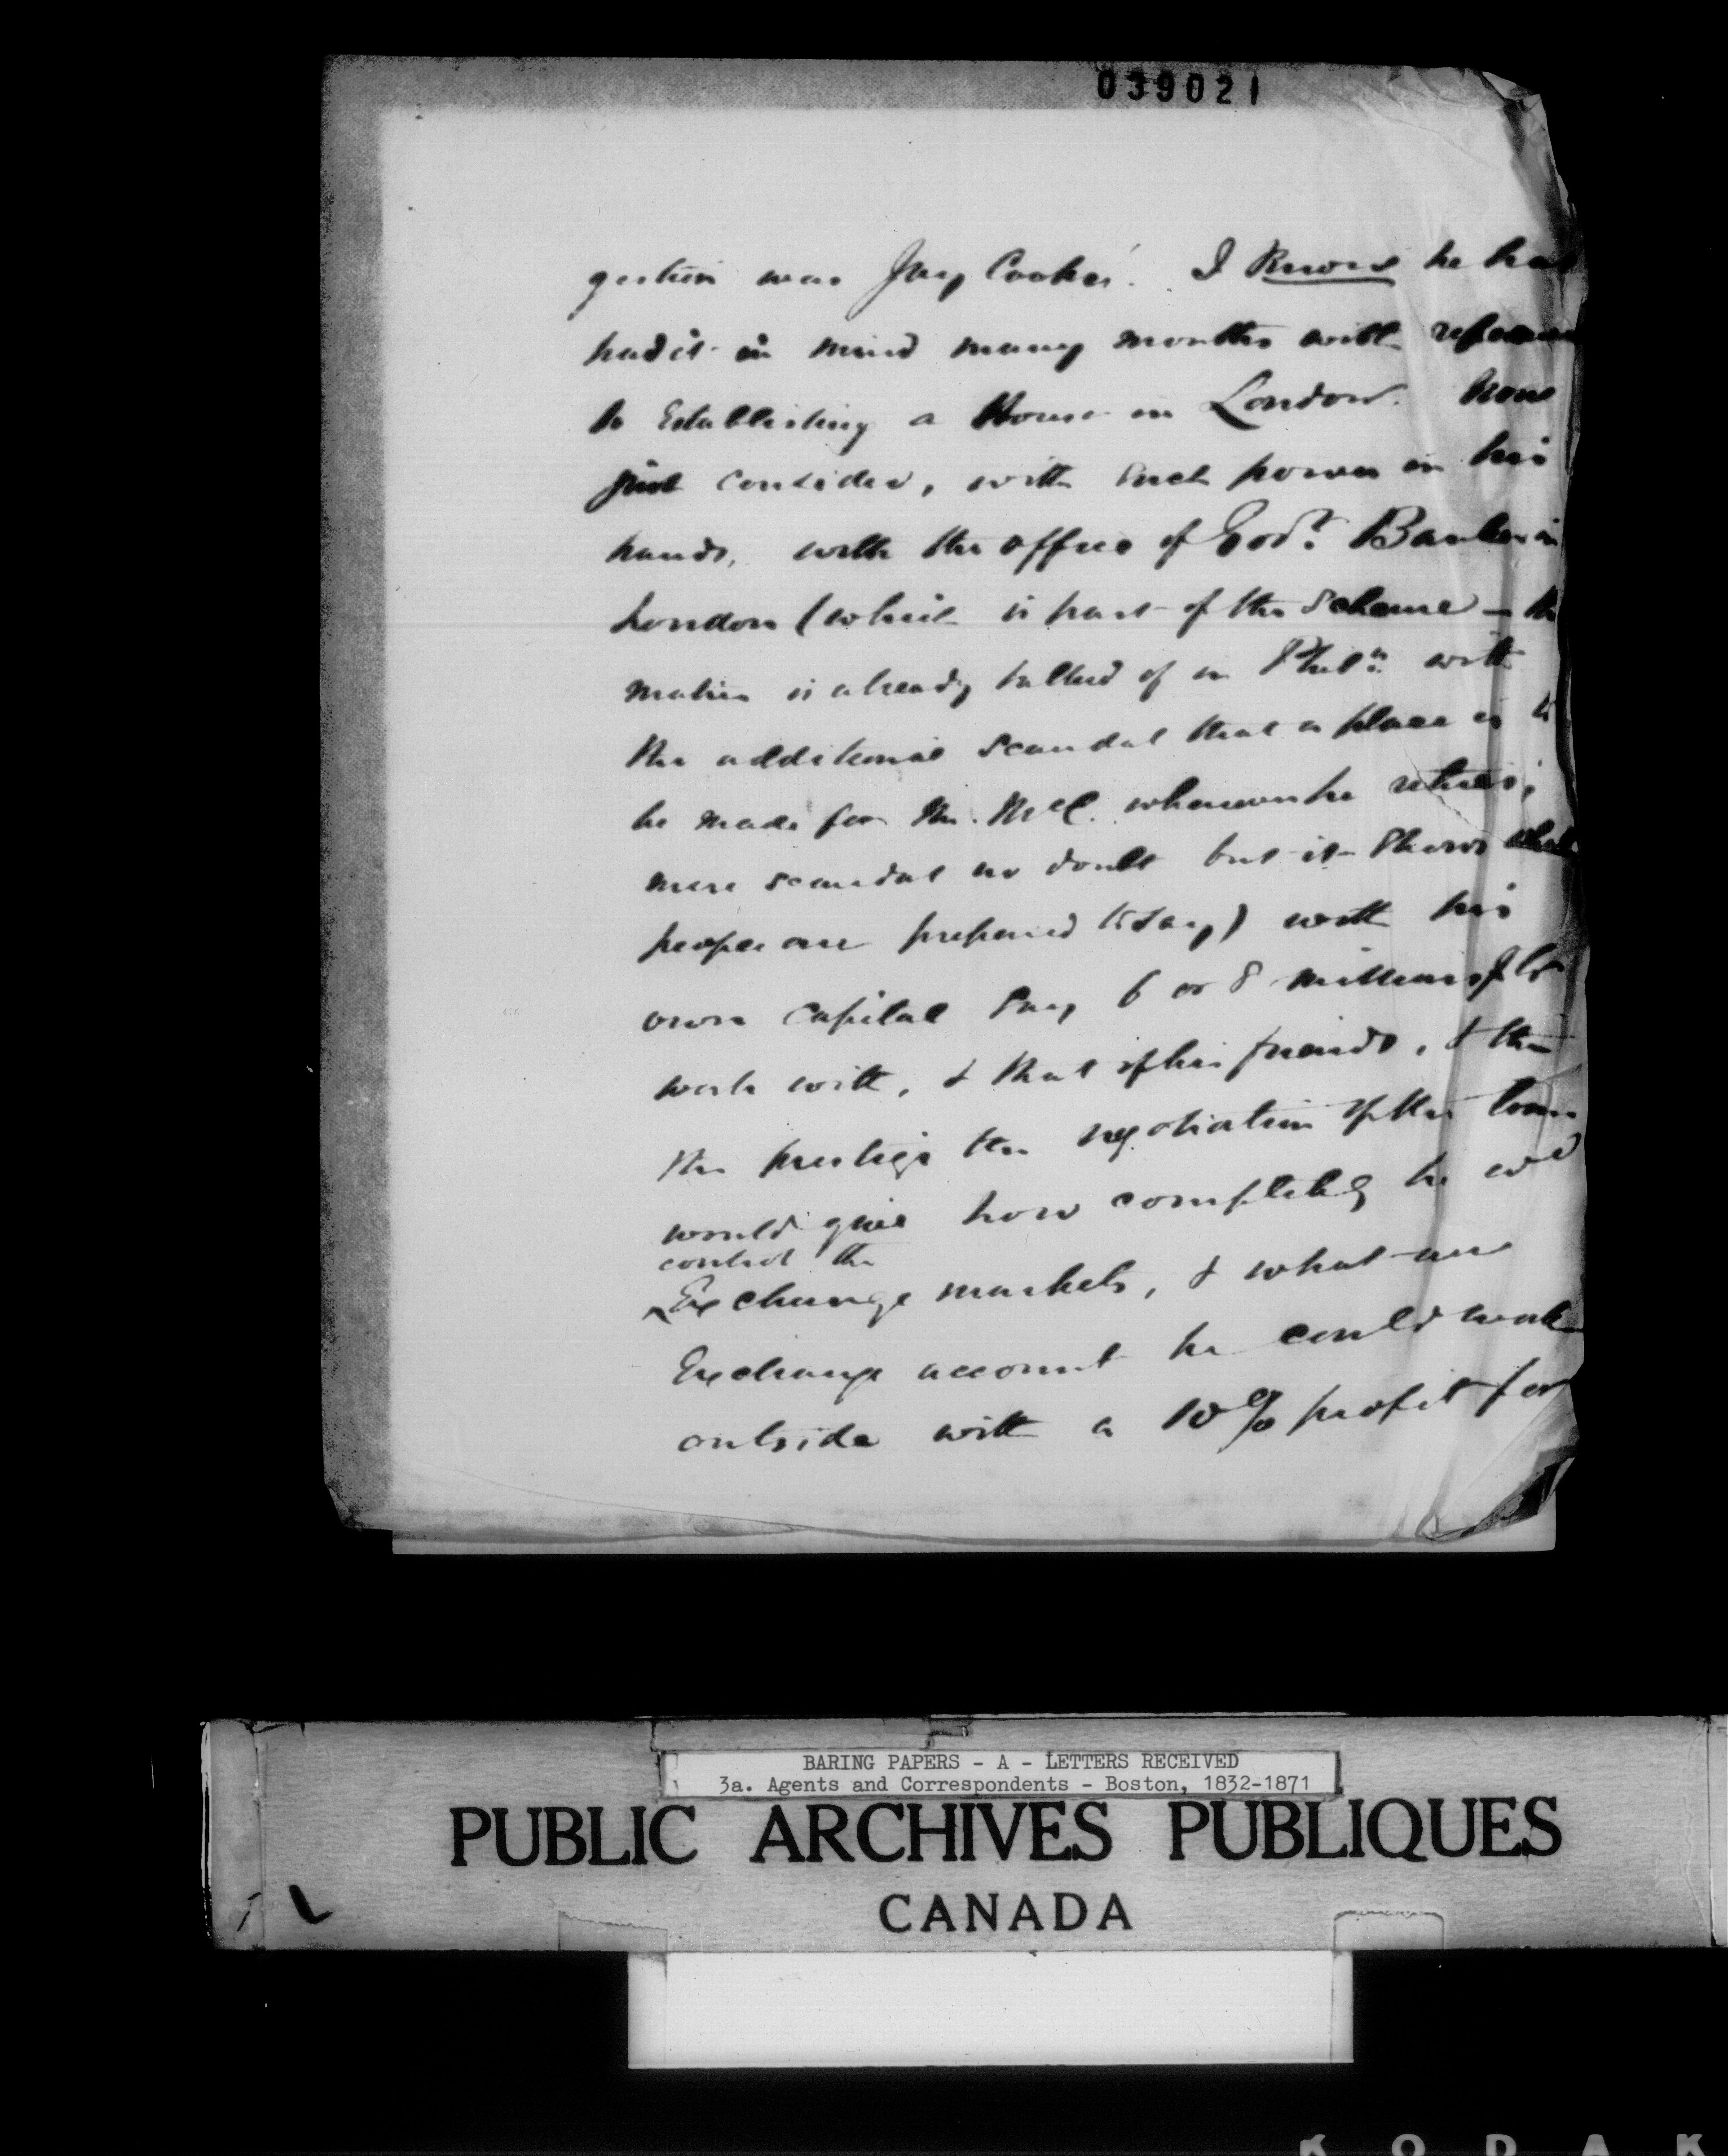 039021
gestion was Jay Cooke's. I Know he has
had it in mind many months with
to Establishing a House in London. Now
just consider, with such power in his
hands, with the office of Govt. Banker in
London (which is part of the scheme — the
matter is already talked of in Phila. with
the additional scandal that a place is to
be made for Mr. McC. whenever he retires;
mere scandal no doubt but it shows what
people are prepared to say) with his
own capital say 6 or 8 millions $ to
work with, & that of his friends, & the
the prestige the negotiation of this loan
would give how completely he wd
control the
Exchange markets, & what an
Exchange account he could work
outside with a 10% profit for
BARING PAPERS - A - LETTERS RECEIVED
3a. Agents and Correspondents - Boston, 1832-1871
PUBLIC ARCHIVES PUBLIQUES
CANADA
KODAK